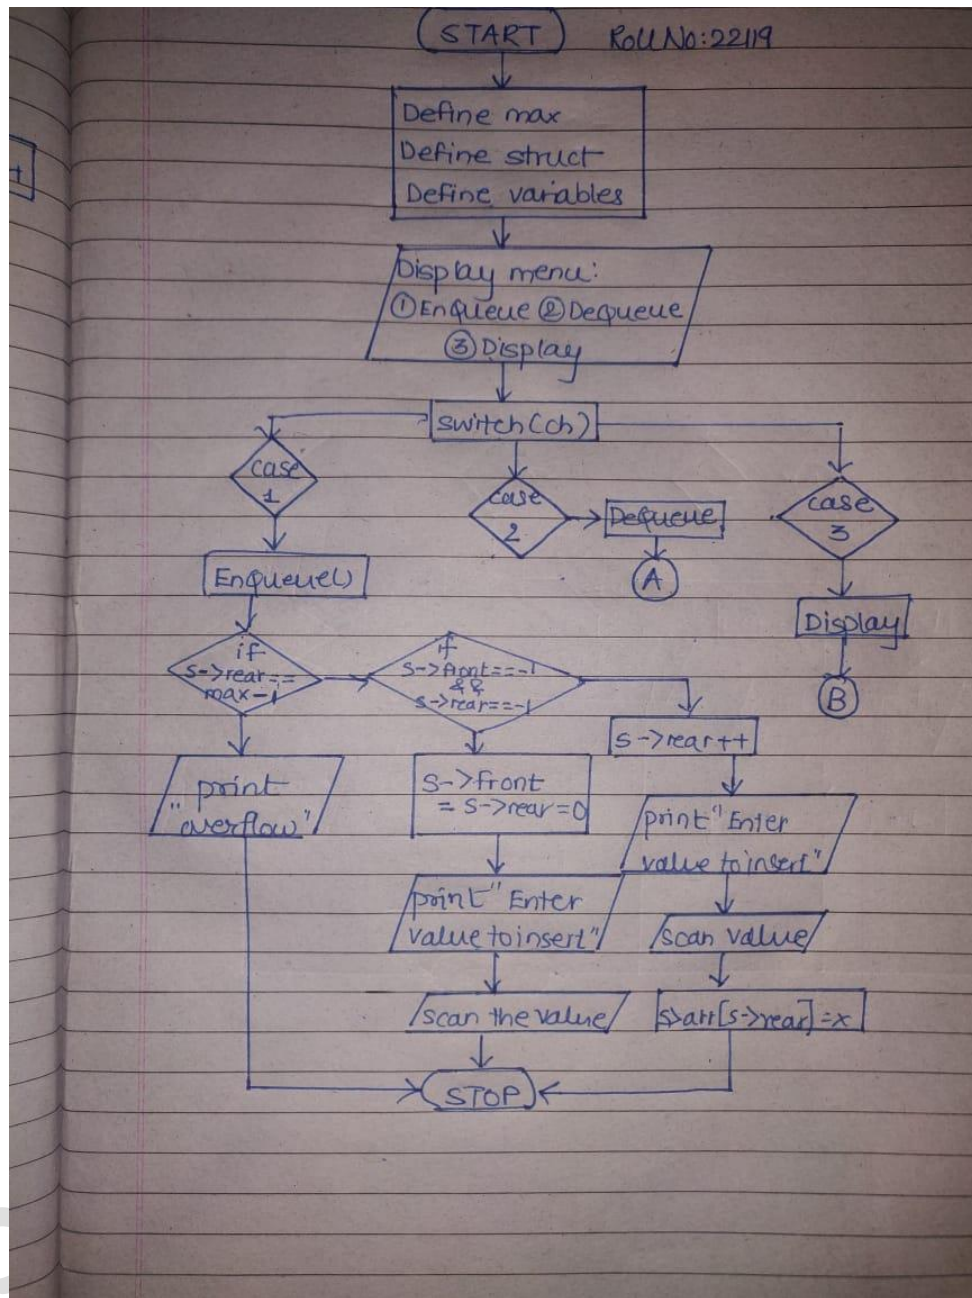 START
Roll No:22119
Define max
Define struct
Define variables
Display menu:
① Enqueue ② Dequeue
③ Display
switch(ch)
case
1
case
2
Dequeue
A
case
3
Enqueue()
Display
B
if
s->rear==
max-1
if
s->front==-1
&&
s->rear==-1
s->rear++
print
"overflow"
s->front
= s->rear=0
print "Enter
value to insert"
print "Enter
value to insert"
scan value
scan the value
s->arr[s->rear]=x
STOP